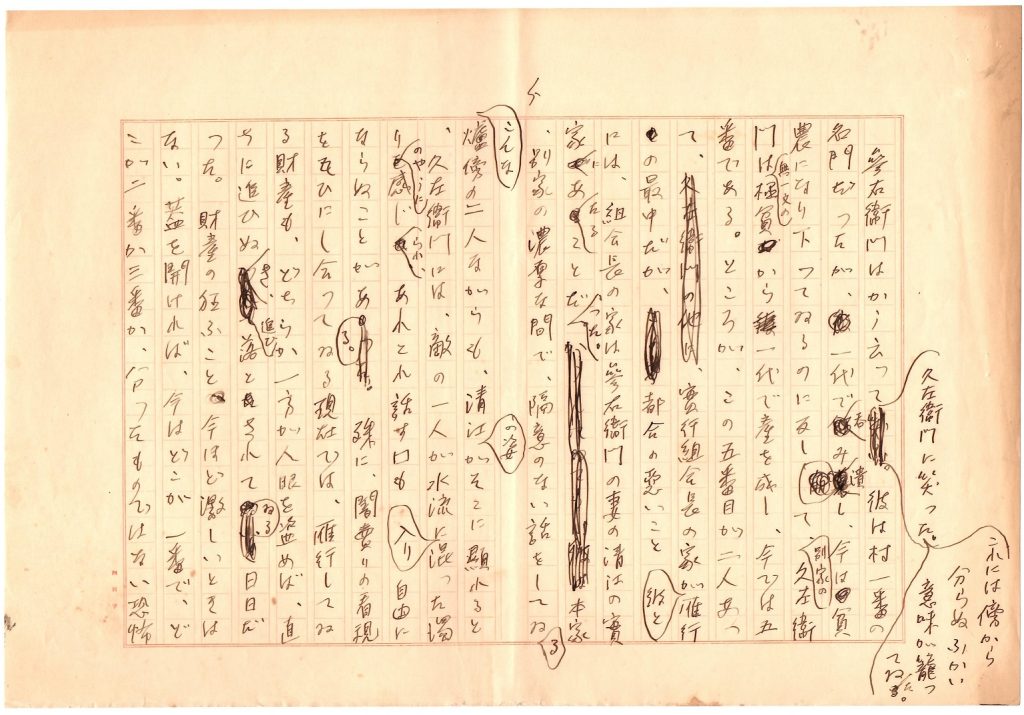 これには傍から
分らぬふかい
意味が籠つ
てゐた。
久左衛門に笑つた。
參右衛門はかう云つて 彼は村一番の
名門だつたが、一代で呑み潰し、今は貧
農になり下つてゐるのに反して、別家の久左衛
門は極貧の無一文から一代で産を成し、今では五
番である。ところが、この五番目が二人あつ
て、久左衛門の他に、實行組合長の家が雁行
の最中だが、都合の悪いこと
には、組合長の家は參右衛門の妻の清江の實
家にあたることだつた。本家
、別家の濃厚な間で、隔意のない話をしてゐ
こんな爐傍の二人ながらも、清江がそこに顕れると
の姿
、久左衛門には、敵の一人が水流に混つた濁
りのやうに感じられ あれこれ話す口も 入り 自由に
ならぬことがある。殊に、闇賣りの看視
を互ひにし合つてゐる現在では、雁行してゐ
る財産も、どちらか一方が人眼を盗めば、直
ちに追ひぬき、追ひ落とされてゐる日日だ
つた。財産の狂ふこと今ほど激しいときは
ない。蓋を開ければ、今はどこが一番で、ど
こが二番か三番か、分つたものではない恐怖
3